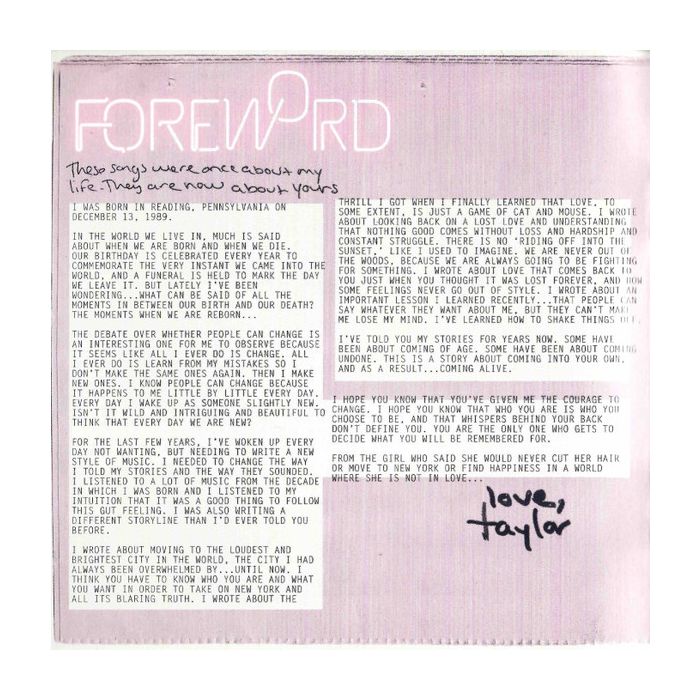 FOREWORD
These songs were once about my
life. They are now about yours
I WAS BORN IN READING, PENNSYLVANIA ON
DECEMBER 13, 1989.
IN THE WORLD WE LIVE IN, MUCH IS SAID
ABOUT WHEN WE ARE BORN AND WHEN WE DIE.
OUR BIRTHDAY IS CELEBRATED EVERY YEAR TO
COMMEMORATE THE VERY INSTANT WE CAME INTO THE
WORLD, AND A FUNERAL IS HELD TO MARK THE DAY
WE LEAVE IT. BUT LATELY I'VE BEEN
WONDERING...WHAT CAN BE SAID OF ALL THE
MOMENTS IN BETWEEN OUR BIRTH AND OUR DEATH?
THE MOMENTS WHEN WE ARE REBORN...
THE DEBATE OVER WHETHER PEOPLE CAN CHANGE IS
AN INTERESTING ONE FOR ME TO OBSERVE BECAUSE
IT SEEMS LIKE ALL I EVER DO IS CHANGE. ALL
I EVER DO IS LEARN FROM MY MISTAKES SO I
DON'T MAKE THE SAME ONES AGAIN. THEN I MAKE
NEW ONES. I KNOW PEOPLE CAN CHANGE BECAUSE
IT HAPPENS TO ME LITTLE BY LITTLE EVERY DAY.
EVERY DAY I WAKE UP AS SOMEONE SLIGHTLY NEW.
ISN'T IT WILD AND INTRIGUING AND BEAUTIFUL TO
THINK THAT EVERY DAY WE ARE NEW?
FOR THE LAST FEW YEARS, I'VE WOKEN UP EVERY
DAY NOT WANTING, BUT NEEDING TO WRITE A NEW
STYLE OF MUSIC. I NEEDED TO CHANGE THE WAY
I TOLD MY STORIES AND THE WAY THEY SOUNDED.
I LISTENED TO A LOT OF MUSIC FROM THE DECADE
IN WHICH I WAS BORN AND I LISTENED TO MY
INTUITION THAT IT WAS A GOOD THING TO FOLLOW
THIS GUT FEELING. I WAS ALSO WRITING A
DIFFERENT STORYLINE THAN I'D EVER TOLD YOU
BEFORE.
I WROTE ABOUT MOVING TO THE LOUDEST AND
BRIGHTEST CITY IN THE WORLD, THE CITY I HAD
ALWAYS BEEN OVERWHELMED BY...UNTIL NOW. I
THINK YOU HAVE TO KNOW WHO YOU ARE AND WHAT
YOU WANT IN ORDER TO TAKE ON NEW YORK AND
ALL ITS BLARING TRUTH. I WROTE ABOUT THE
THRILL I GOT WHEN I FINALLY LEARNED THAT LOVE, TO
SOME EXTENT, IS JUST A GAME OF CAT AND MOUSE. I WROTE
ABOUT LOOKING BACK ON A LOST LOVE AND UNDERSTANDING
THAT NOTHING GOOD COMES WITHOUT LOSS AND HARDSHIP AND
CONSTANT STRUGGLE. THERE IS NO 'RIDING OFF INTO THE
SUNSET,' LIKE I USED TO IMAGINE. WE ARE NEVER OUT OF
THE WOODS, BECAUSE WE ARE ALWAYS GOING TO BE FIGHTING
FOR SOMETHING. I WROTE ABOUT LOVE THAT COMES BACK TO
YOU JUST WHEN YOU THOUGHT IT WAS LOST FOREVER, AND HOW
SOME FEELINGS NEVER GO OUT OF STYLE. I WROTE ABOUT AN
IMPORTANT LESSON I LEARNED RECENTLY...THAT PEOPLE CAN
SAY WHATEVER THEY WANT ABOUT ME, BUT THEY CAN'T MAKE
ME LOSE MY MIND. I'VE LEARNED HOW TO SHAKE THINGS OFF.
I'VE TOLD YOU MY STORIES FOR YEARS NOW. SOME HAVE
BEEN ABOUT COMING OF AGE. SOME HAVE BEEN ABOUT COMING
UNDONE. THIS IS A STORY ABOUT COMING INTO YOUR OWN,
AND AS A RESULT...COMING ALIVE.
I HOPE YOU KNOW THAT YOU'VE GIVEN ME THE COURAGE TO
CHANGE. I HOPE YOU KNOW THAT WHO YOU ARE IS WHO YOU
CHOOSE TO BE, AND THAT WHISPERS BEHIND YOUR BACK
DON'T DEFINE YOU. YOU ARE THE ONLY ONE WHO GETS TO
DECIDE WHAT YOU WILL BE REMEMBERED FOR.
FROM THE GIRL WHO SAID SHE WOULD NEVER CUT HER HAIR
OR MOVE TO NEW YORK OR FIND HAPPINESS IN A WORLD
WHERE SHE IS NOT IN LOVE...
love,
taylor